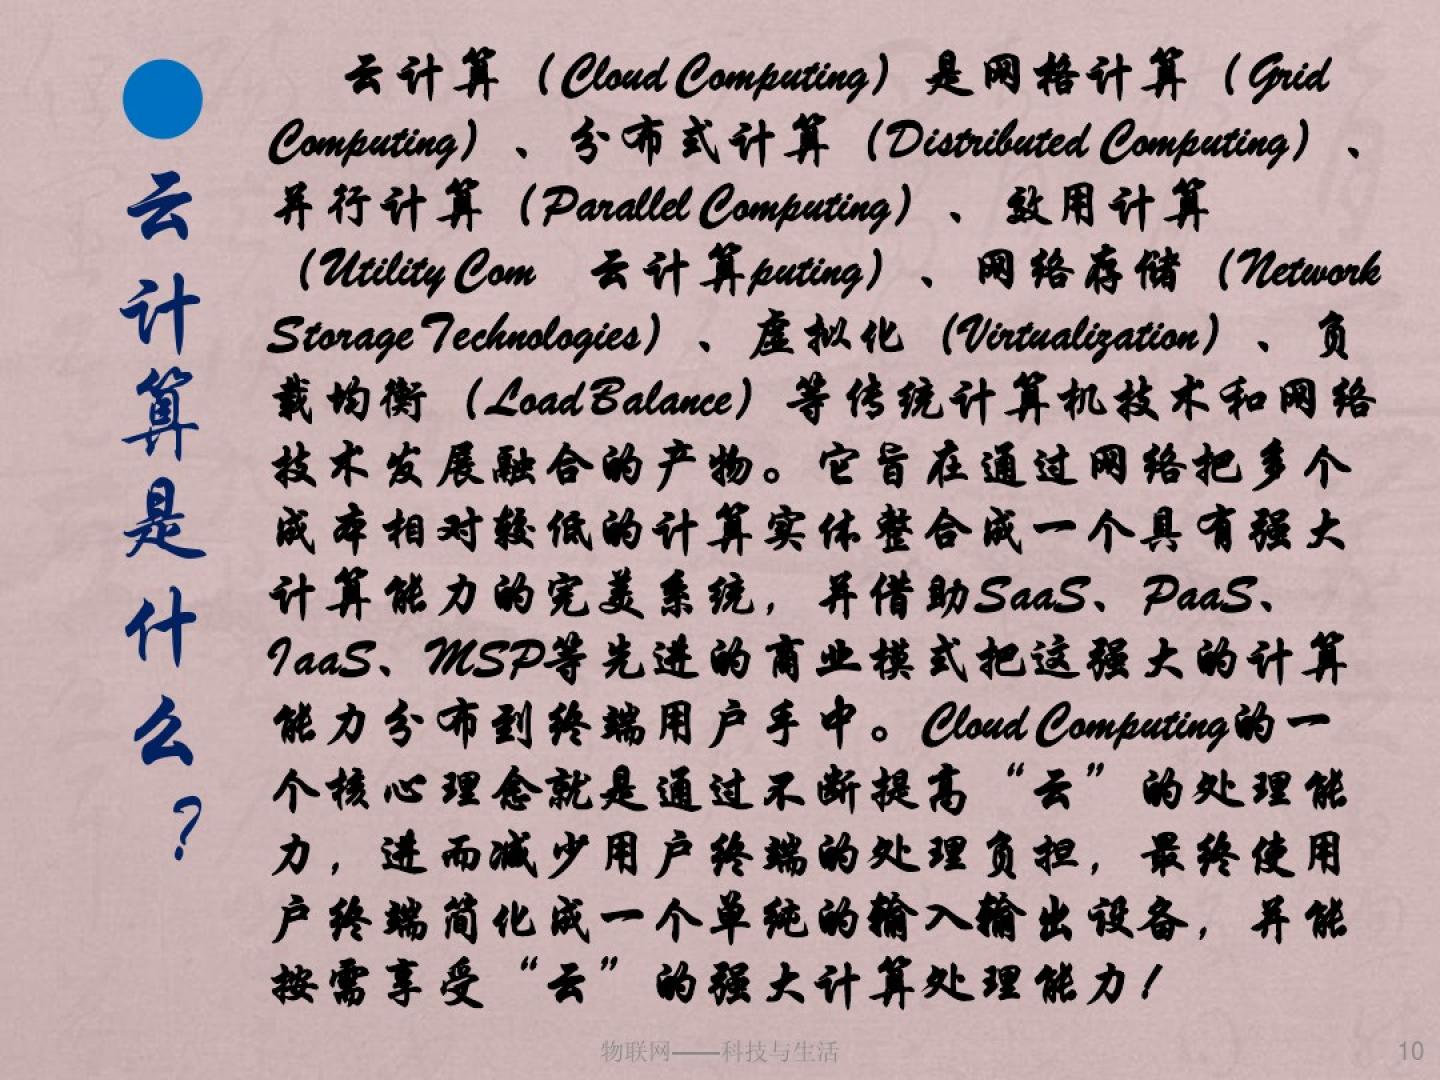 云计算是什么？
云计算（Cloud Computing）是网格计算（Grid
Computing）、分布式计算（Distributed Computing）、
并行计算（Parallel Computing）、效用计算
（Utility Com 云计算puting）、网络存储（Network
Storage Technologies）、虚拟化（Virtualization）、负
载均衡（Load Balance）等传统计算机技术和网络
技术发展融合的产物。它旨在通过网络把多个
成本相对较低的计算实体整合成一个具有强大
计算能力的完美系统，并借助SaaS、PaaS、
IaaS、MSP等先进的商业模式把这强大的计算
能力分布到终端用户手中。Cloud Computing的一
个核心理念就是通过不断提高“云”的处理能
力，进而减少用户终端的处理负担，最终使用
户终端简化成一个单纯的输入输出设备，并能
按需享受“云”的强大计算处理能力！
物联网——科技与生活
10